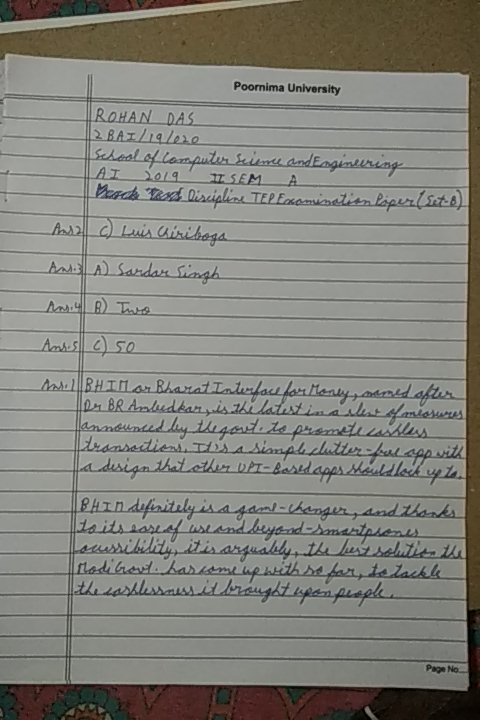 Poornima University
ROHAN DAS
2BAI/19/020
School of Computer Science and Engineering
AI 2019 II SEM A
Discipline TEP Examination Paper (Set-B)
Ans.2 C) Luis Chiriboga
Ans.3 A) Sardar Singh
Ans.4 B) Two
Ans.5 C) 50
Ans.1 BHIM or Bharat Interface for Money, named after
Dr BR Ambedkar, is the latest in a slew of measures
announced by the govt. to promote cashless
transactions. It's a simple clutter-free app with
a design that other UPI-Based apps should look up to.
BHIM definitely is a game-changer, and thanks
to its ease of use and beyond-smartphones
accessibility, it is arguably, the best solution the
Modi Govt. has come up with so far, to tackle
the cashlessness it brought upon people.
Page No.